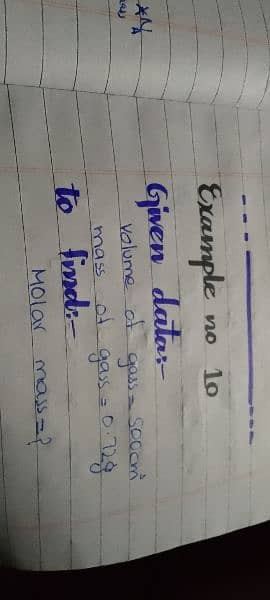 Example no 10
Given data:-
Volume of gass = 500cm³
mass of gass = 0.72g
to find:-
Molar mass = ?